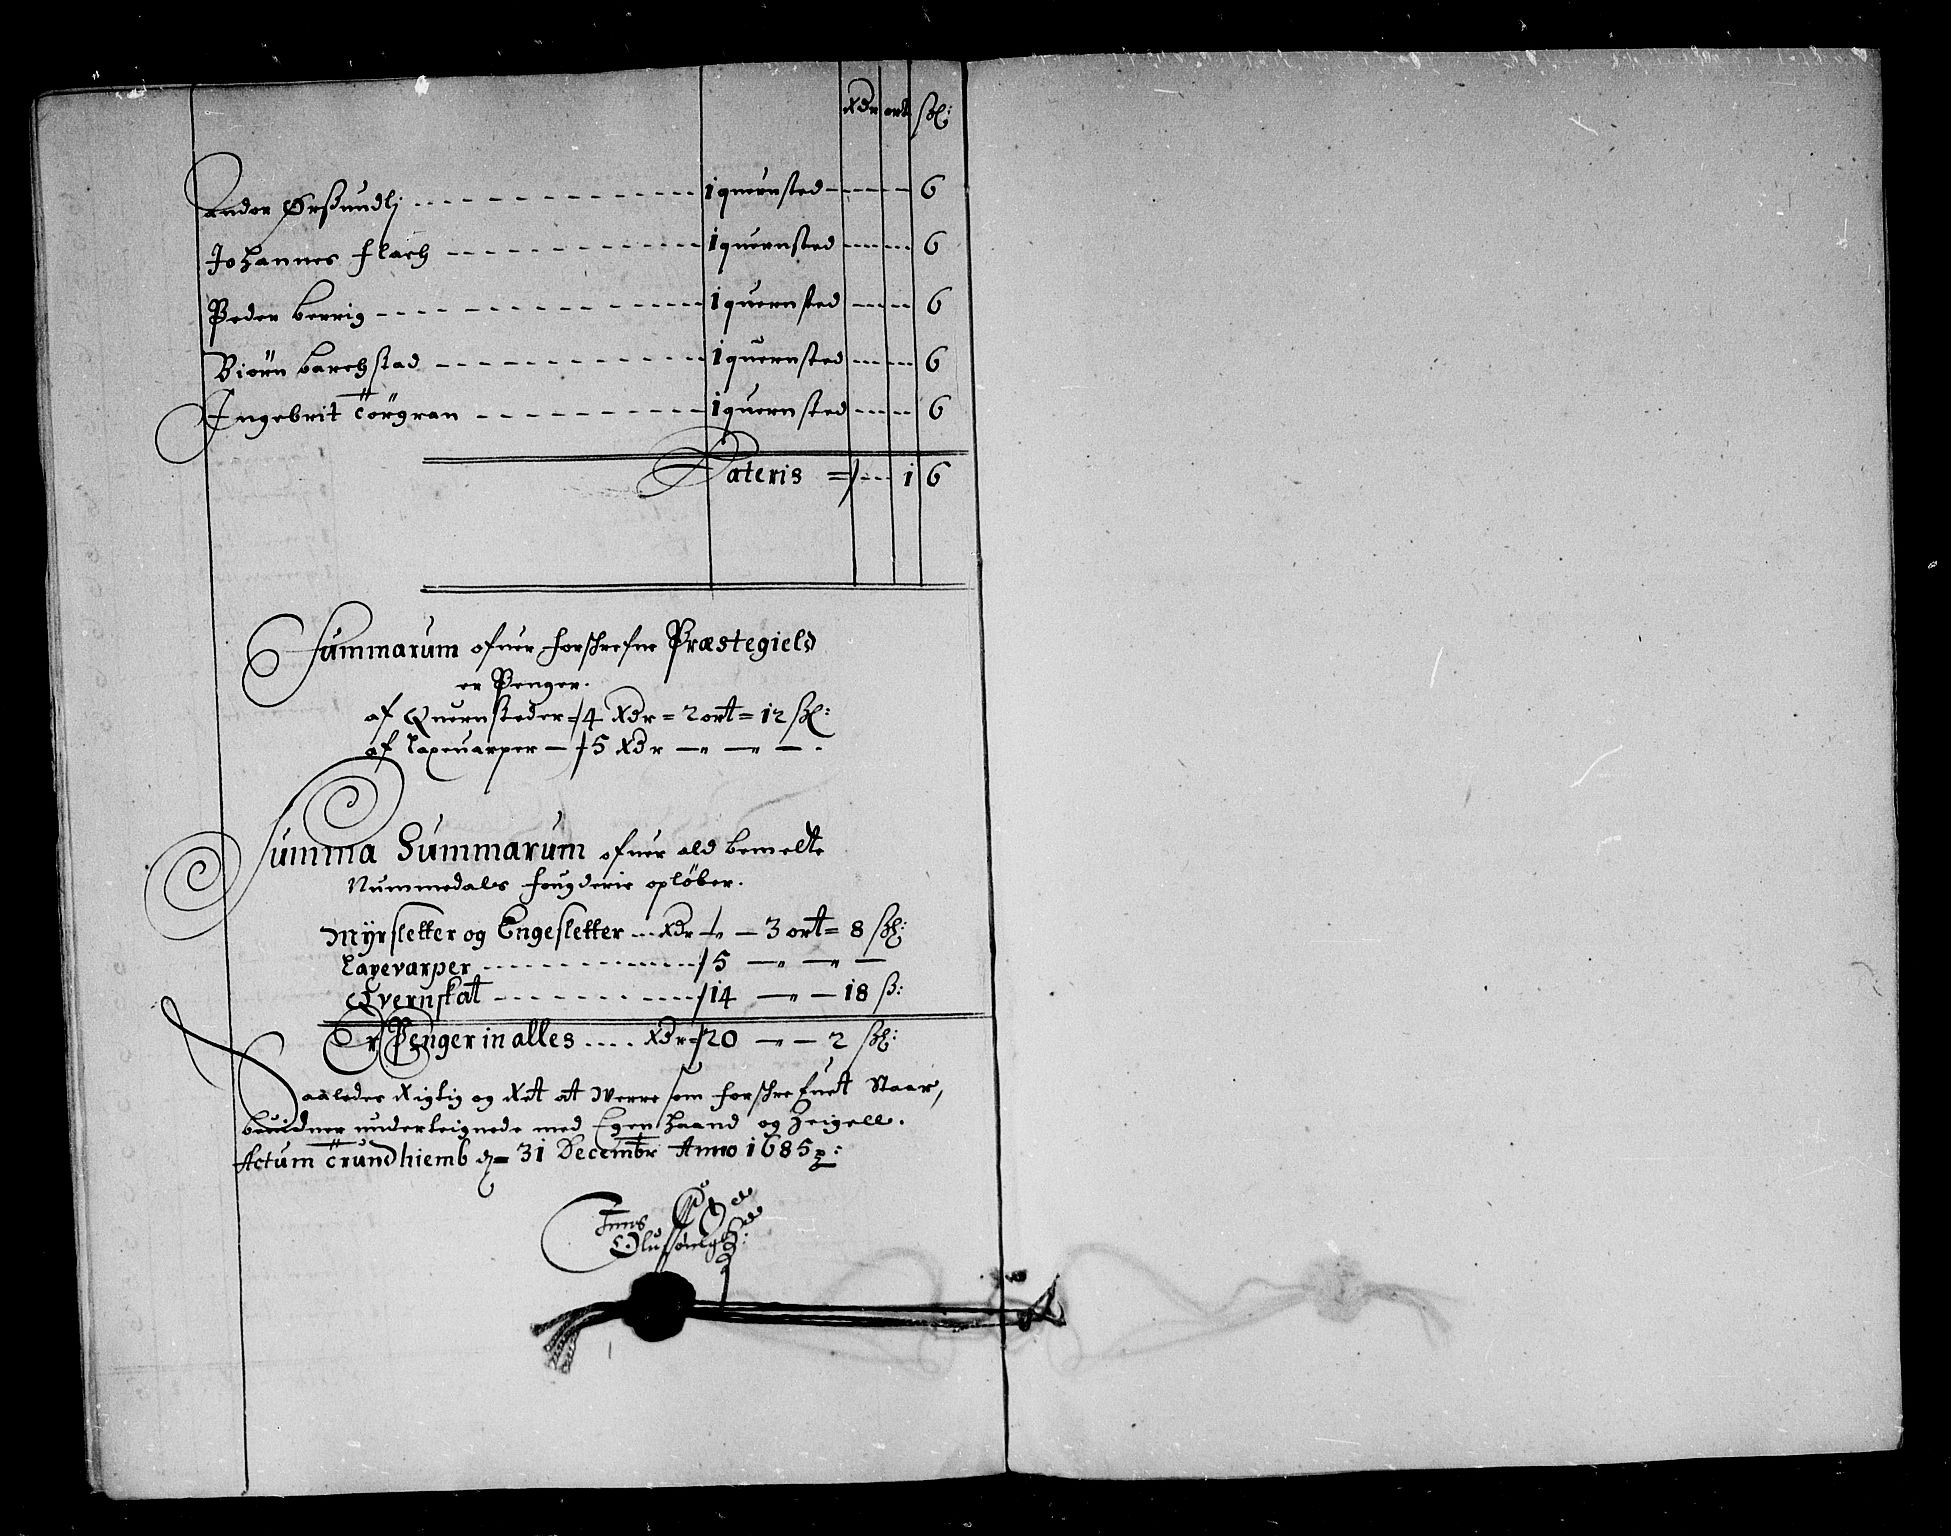 Xdr ort ßl:
andor Ørßundlj - - - 1 quernsted - - - 6
Johannes flach - - - 1 quernsted - - - 6
Peder berrig - - - 1 quernsted - - - 6
Biörn barchstad - - - 1 quernsted - - - 6
Ingebrit Törgran - - - 1 quernsted - - - 6
Lateris = / - - - 1 6
Summarum ofuer forschrefne Præstegield
er Penger.
af Quernsteder = / 4 Xdr = 2 ort = 12 ßl:
af laxeuarper — / 5 Xdr — „ — „ — .
Summa Summarum ofuer ald bemelte
Nummedals fougderie opløber.
Myrsletter og Engesletter ... Xdr / „ — 3 ort = 8 ßl:
Laxevarper - - - / 5 — „ — „ —
Qvernskat - - - / 14 — „ — 18 ß:
Er Penger in alles .... Xdr = / 20 — „ — 2 ßl:
Saaledes Rigtig og Ret at Werre som forschrefuet Staar,
beuidner underteignede med Egen haand og Zeigell.
Actum Trundhiemb d = 31 Decembr Anno 1685